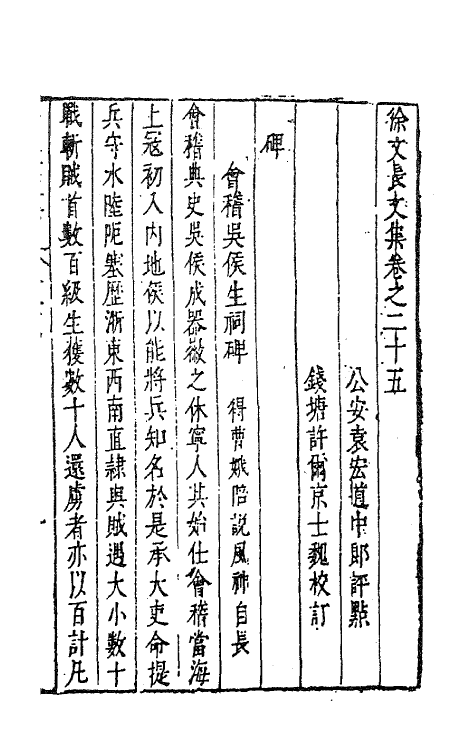 徐文長文集卷之二十五
公安袁宏道中郎評點
錢塘許爾京士魏校訂
碑
會稽吳侯生祠碑　得曹娥陪說風神自長
會稽典史吳侯成器徽之休寧人其始仕會稽當海
上寇初入內地侯以能將兵知名於是承大吏命提
兵守水陸阨塞歷浙東西南直隷與賊遇大小數十
戰斬賊首數百級生獲數十人還虜者亦以百計凡